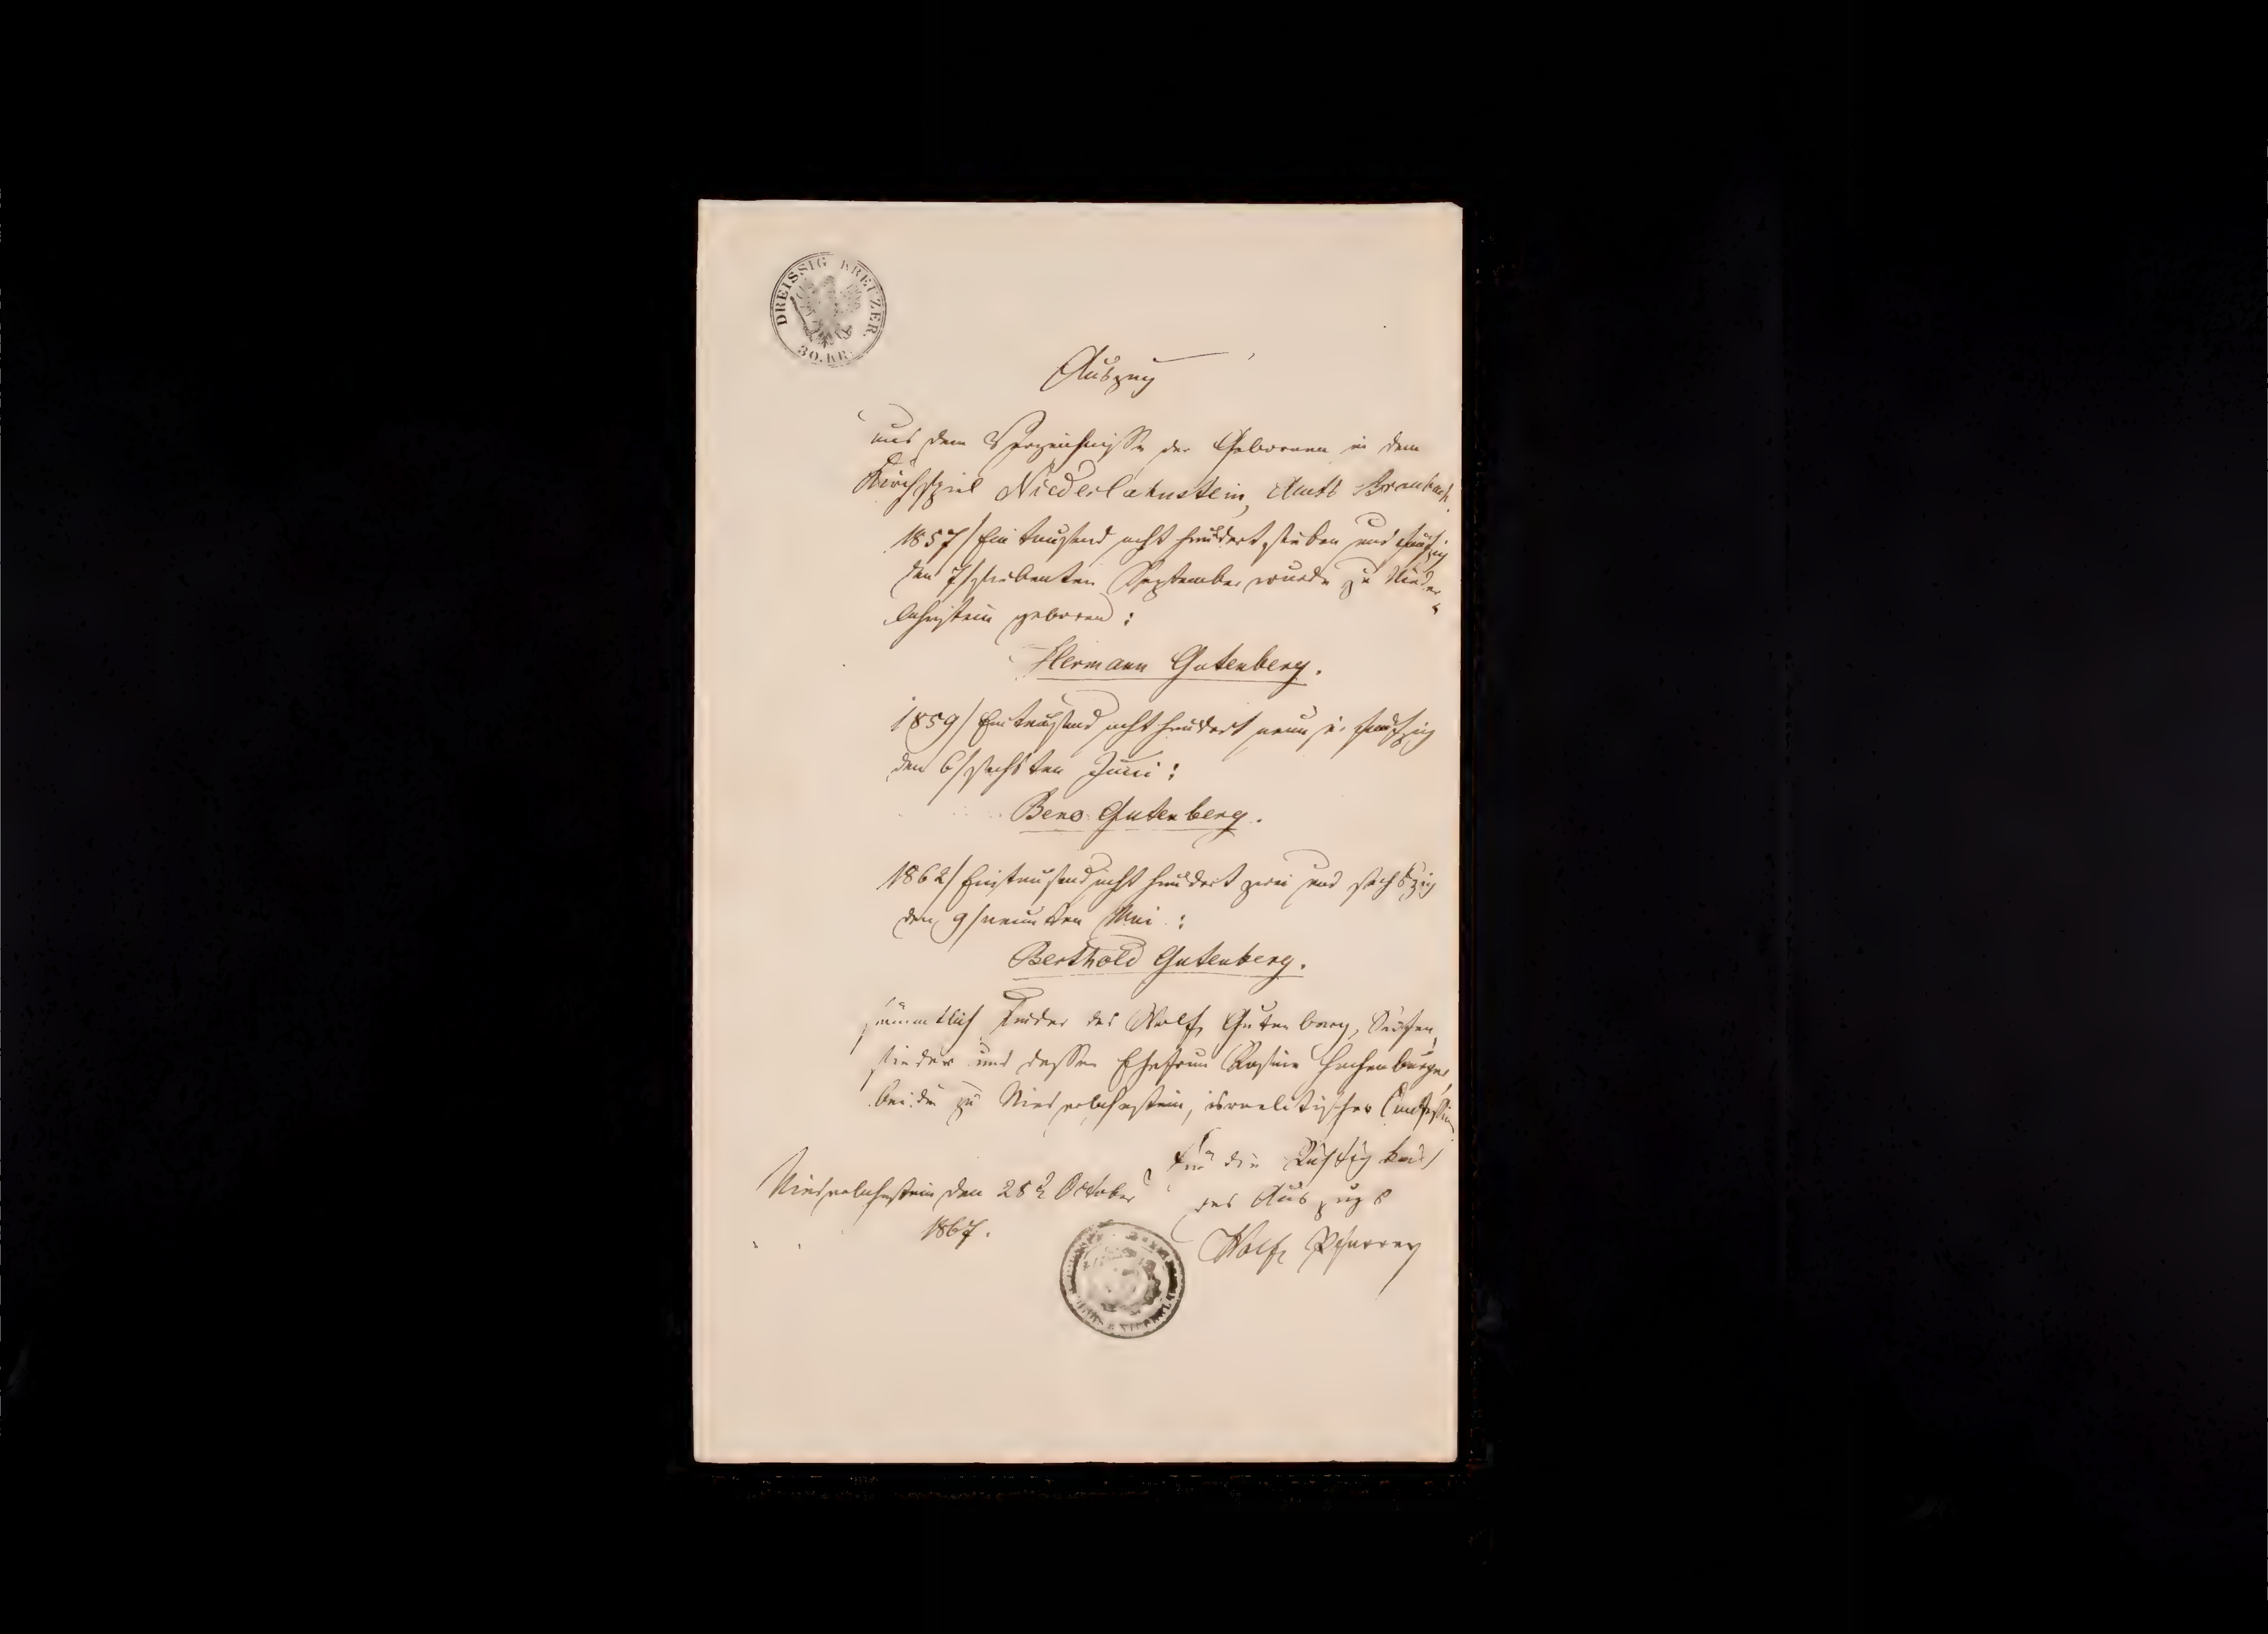 DREISSIG KREUZER.
30. KR.
Auszug
aus dem Verzeichnisse der Geborenen in dem
Kirchspiel Niederlahnstein, Amts Braubach.
1857/ Ein tausend acht hundert sieben und fünfzig
den 7/ siebenten September wurde zu Nieder-
lahnstein geboren:
Hermann Gutenberg.
1859/ Ein tausend acht hundert neun u. fünfzig
den 6/ sechsten Juni:
Beno Gutenberg.
1862/ Ein tausend acht hundert zwei und sechszig
den 9/ neunten Mai:
Berthold Gutenberg.
sämmtlich Kinder des Wolf Gutenberg, Seifen
sieder und dessen Ehefrau Rosine Hachenburger
beide zu Niederlahnstein, israelitischer Confession
Für die Richtigkeit
des Auszugs
Niederlahnstein den 28 October
1867.
Wolf Pfarrer